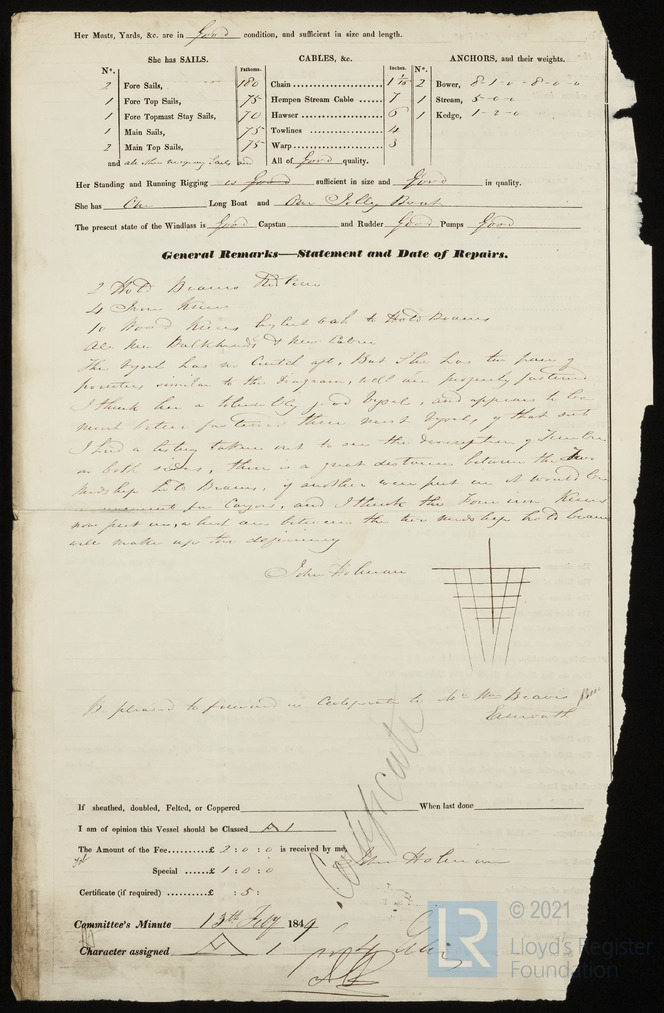 Her Masts, Yards, &c. are in Good condition, and sufficient in size and length.
She has SAILS. CABLES, &c. ANCHORS, and their weights.
N°. Fathoms. Inches. N°.
2 Fore Sails, Chain 180 1 1/16 2 Bower, 8-1-0 - 8-0-0
1 Fore Top Sails, Hempen Stream Cable 75 7 1 Stream, 5-0-0
1 Fore Topmast Stay Sails, Hawser 70 6 1 Kedge, 1-2-0
1 Main Sails, Towlines 75 4
2 Main Top Sails, Warp 75 3
and all other necessary Sails and All of Good quality.
Her Standing and Running Rigging is Good sufficient in size and Good in quality.
She has One Long Boat and One Jolly Boat
The present state of the Windlass is Good Capstan and Rudder Good Pumps Good
General Remarks—Statement and Date of Repairs.
2 Hold Beams
4 Iron Knees
10 Wood Knees to Hold Beams
New Bulkheads & New Cabin
The Vessel has no Crutch aft, But She has two pair of
pointers similar to the diagram, well and properly fastened
I think her a tolerably good Vessel, and appears to be
much better fastened than most Vessels of that sort
I had a listing taken out to see the description of Timber
on both sides, there is a great distance between the two
midship Hold Beams, if another were put in it would be
for Cargoes, and I think the Four iron Knees
now put in, abest and between the two midships hold beams
will make up the deficiency
John Holman
Be pleased to forward a Certificate to Mr Wm Beavis
Exmouth
Certificate
If sheathed, doubled, Felted, or Coppered When last done
I am of opinion this Vessel should be Classed A 1
The Amount of the Fee £ 2 : 0 : 0 is received by me, John Holman
Special £ 1 : 0 : 0
Certificate (if required) £ : 5 :
Committee's Minute 13th Feby 1849
Character assigned A 1
LR © 2021
Lloyd's Register
Foundation